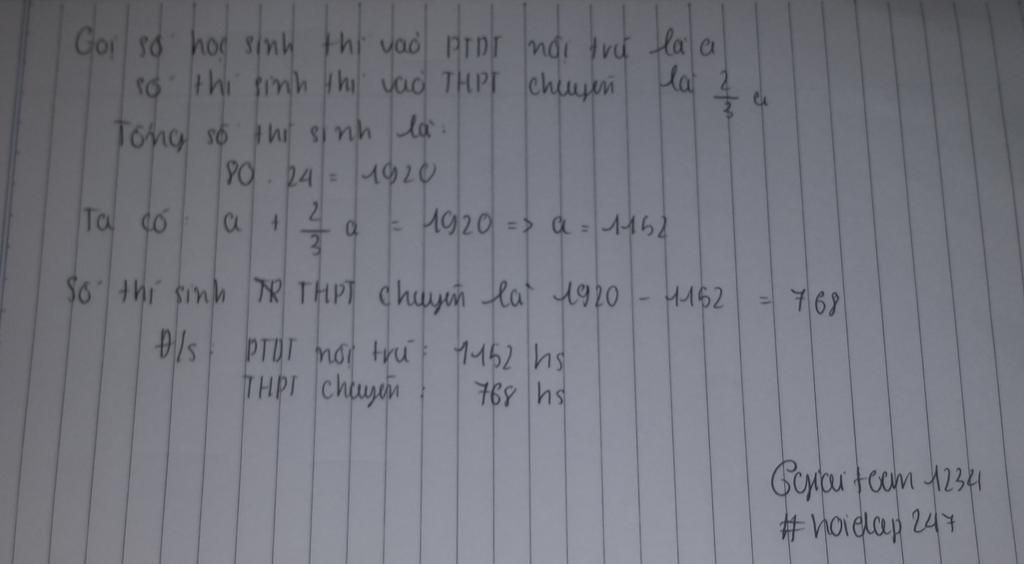 Gọi số học sinh thi vào PTDT nội trú là a
số thí sinh thi vào THPT chuyên là 2/3 a
Tổng số thí sinh là:
80 . 24 = 1920
Ta có: a + 2/3 a = 1920 => a = 1152
Số thí sinh THPT chuyên là 1920 - 1152 = 768
Đ/s: PTDT nội trú: 1152 hs
THPT chuyên: 768 hs
team 1234
# hoidap 247